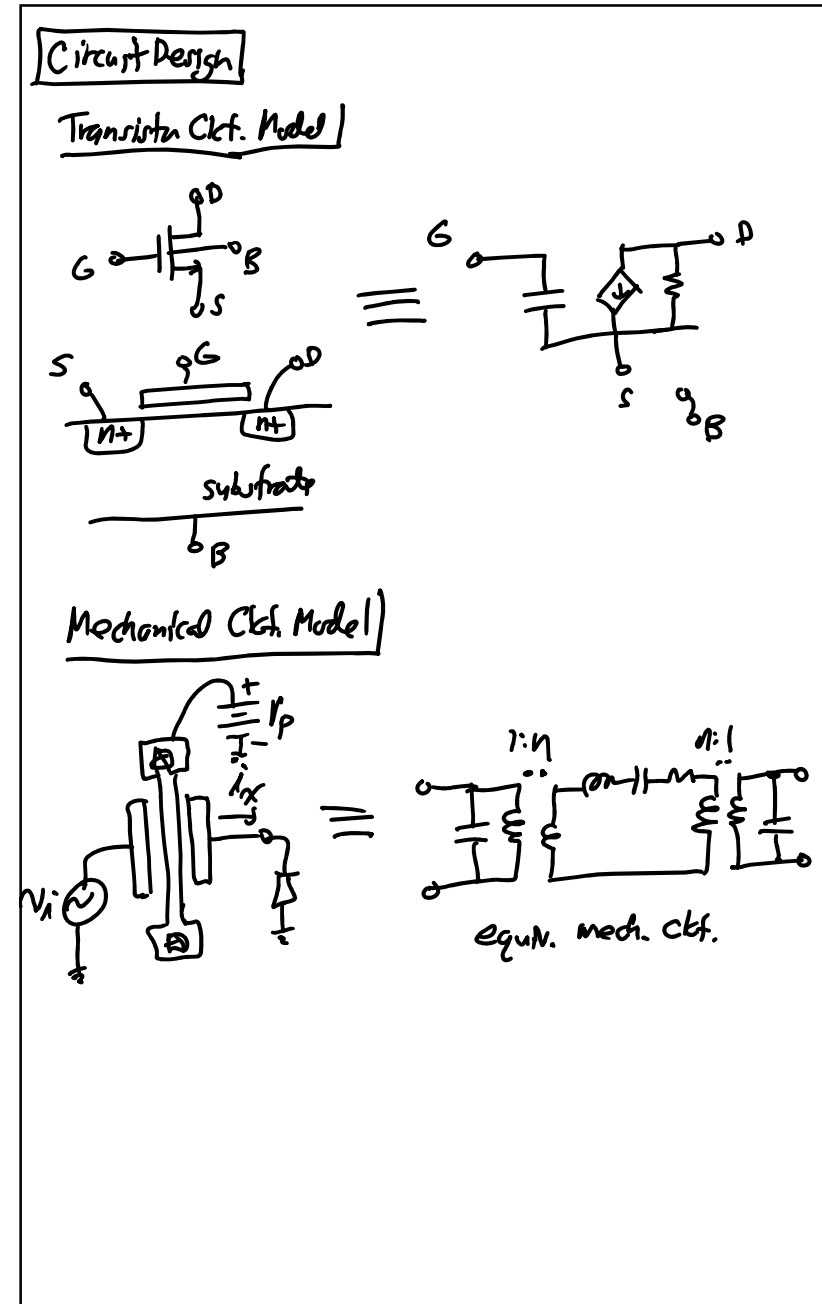 Circuit Design
Transistor Ckt. Model
D
G
B
S
G
D
S
B
S
G
D
n+
n+
substrate
B
Mechanical Ckt. Model
+
VP
-
ix
vi
1:n
n:1
equiv. mech. ckt.